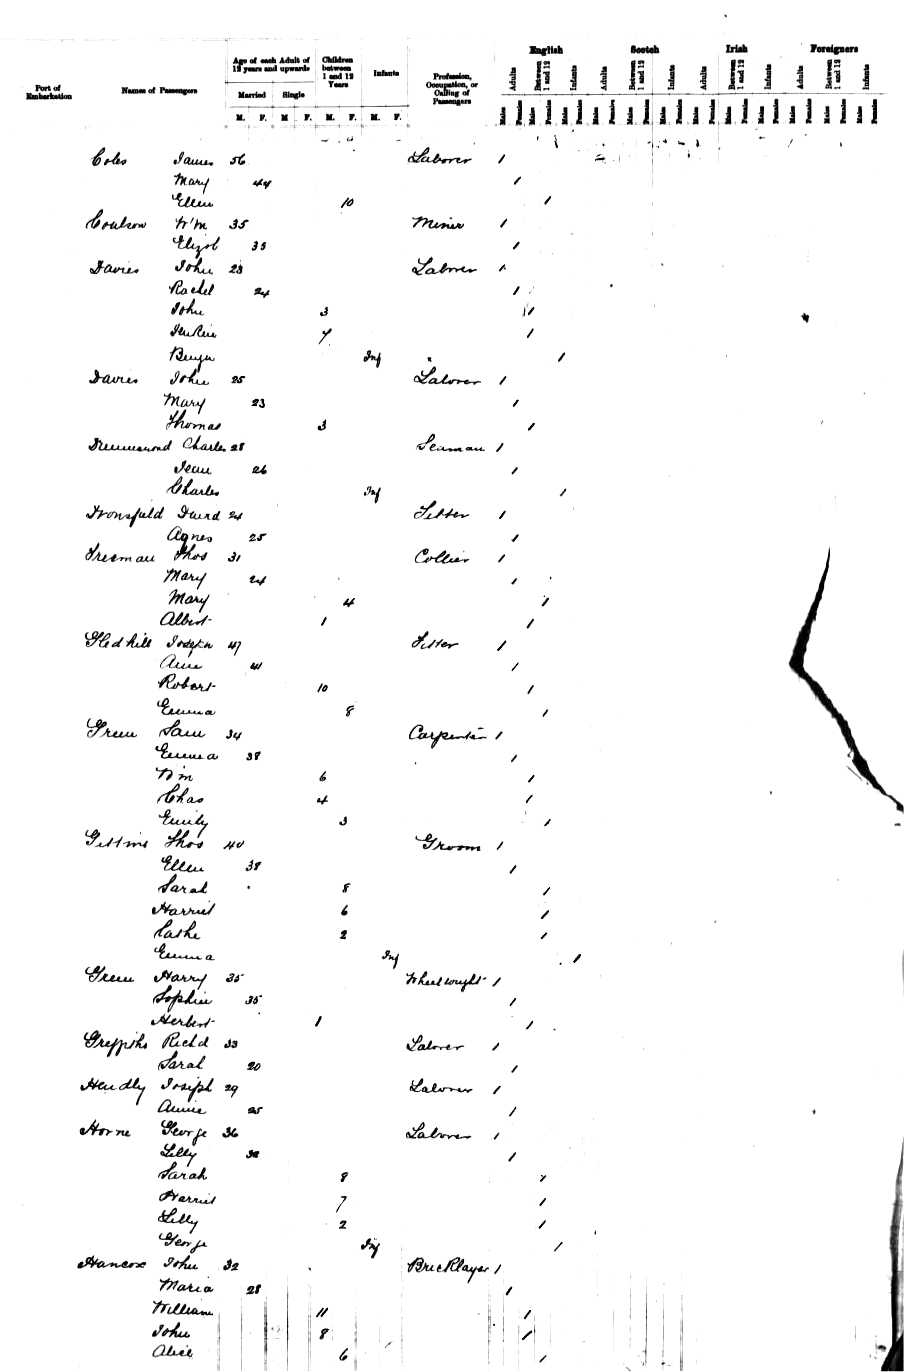 English Scotch Irish Foreigners
Port of Embarkation Names of Passengers Age of each Adult of 12 years and upwards Children between 1 and 12 Years Infants Profession, Occupation, or Calling of Passengers Adults Between 1 and 12 Infants Adults Between 1 and 12 Infants Adults Between 1 and 12 Infants Adults Between 1 and 12 Infants
Married Single
M. F. M F. M. F. M. F. Males Females Males Females Males Females Males Females Males Females Males Females Males Females Males Females Males Females Males Females Males Females Males Females
Coles James 56 Laborer 1
Mary 44 1
Ellen 10 1
Coulson Wm 35 Miner 1
Elizab 35 1
Davies John 23 Laborer 1
Rachel 24 1
John 3 1
Jenkin 7 1
Benjn Inf 1
Davies John 25 Laborer 1
Mary 23 1
Thomas 3 1
Drummond Charles 28 Seaman 1
Jean 26 1
Charles Inf 1
David 24 Fitter 1
Agnes 25 1
Freeman Thos 31 Collier 1
Mary 24 1
Mary 4 1
Albert 1 1
Gledhill Joseph 47 Fitter 1
Ann 41 1
Robert 10 1
Emma 8 1
Green Sam 34 Carpenter 1
Emma 38 1
Wm 6 1
Chas 4 1
Emily 3 1
Gittins Thos 40 Groom 1
Ellen 38 1
Sarah 8 1
Harriet 6 1
Cathe 2 1
Emma Inf 1
Green Harry 35 Wheelwright 1
Sophie 35 1
Herbert 1 1
Griffiths Richd 33 Laborer 1
Sarah 20 1
Hendly Joseph 29 Laborer 1
Annie 25 1
Horne George 36 Laborer 1
Lilly 32 1
Sarah 8 1
Harriet 7 1
Lilly 2 1
George Inf 1
Hancox John 32 Bricklayer 1
Maria 28 1
William 11 1
John 8 1
Alice 6 1